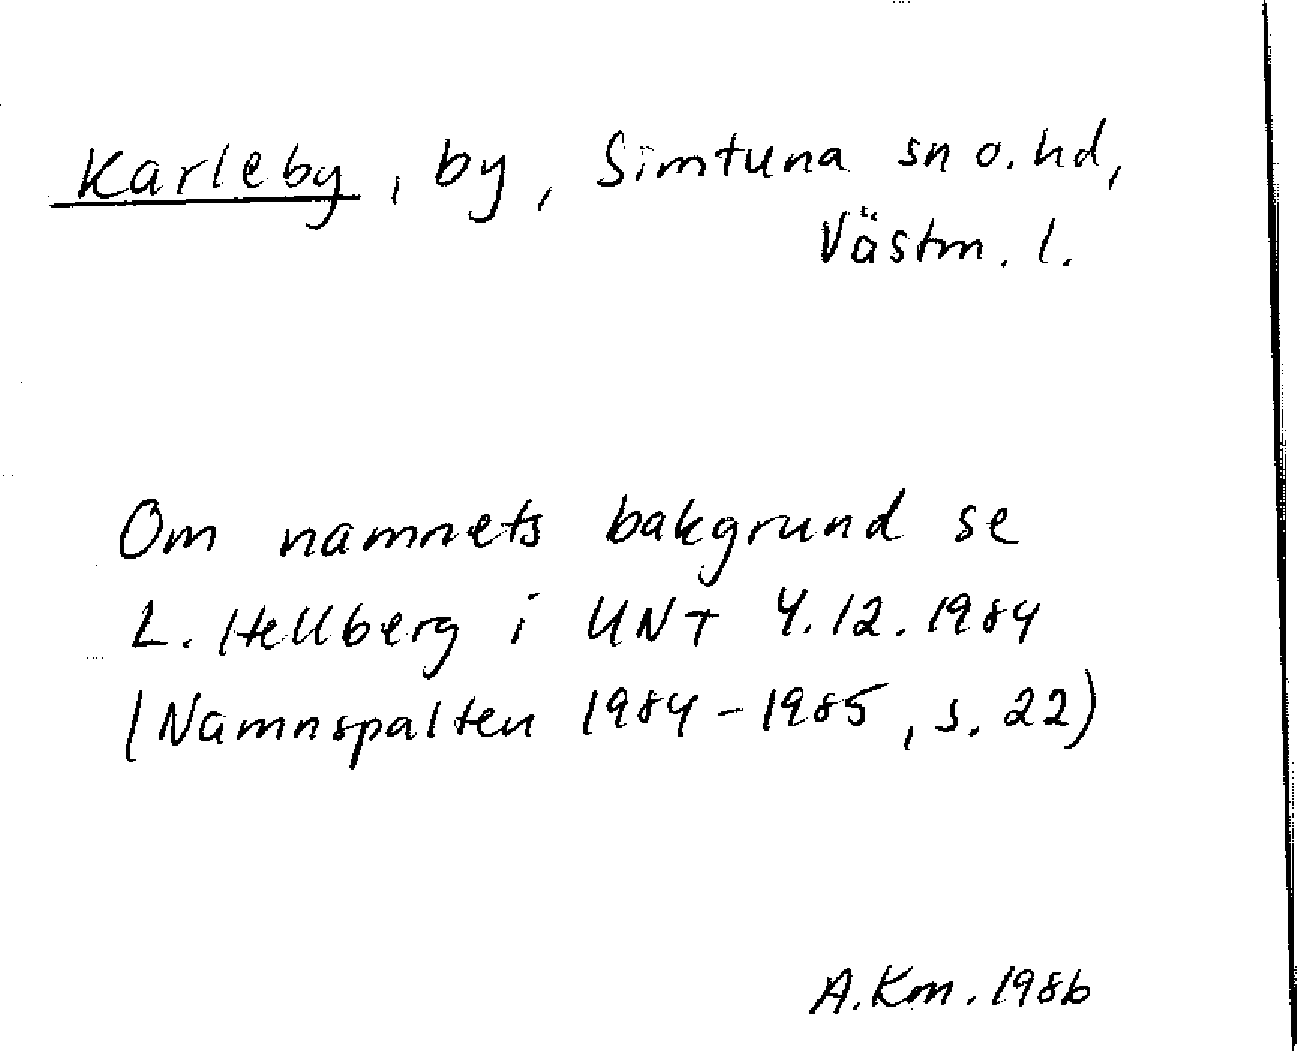 Karleby, by, Simtuna sn o. hd,
Västm. l.
Om namnets bakgrund se
L. Hellberg i UNT 4.12.1984
(Namnspalten 1984-1985, s. 22)
A.Km. 1986